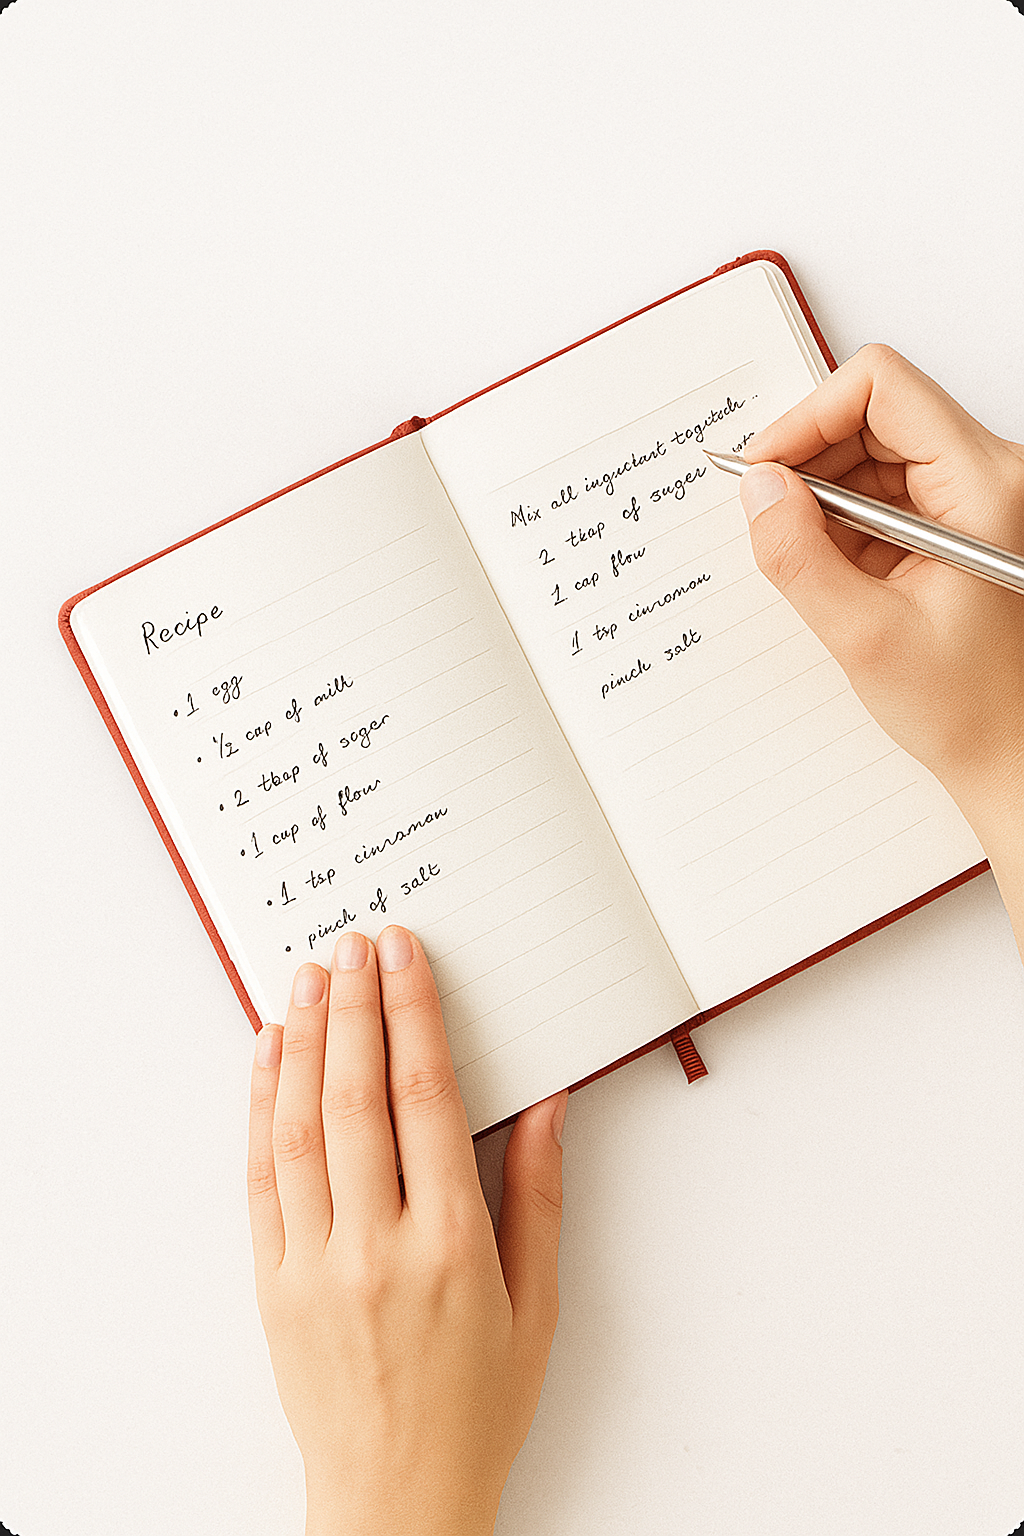 Recipe
• 1 egg
• ½ cup of milk
• 2 tbap of soger
• 1 cup of flour
• 1 tsp cinnamon
• pinch of salt
Mix all
2 tkap of suger
1 cap flou
1 tsp cinnomon
pinch salt